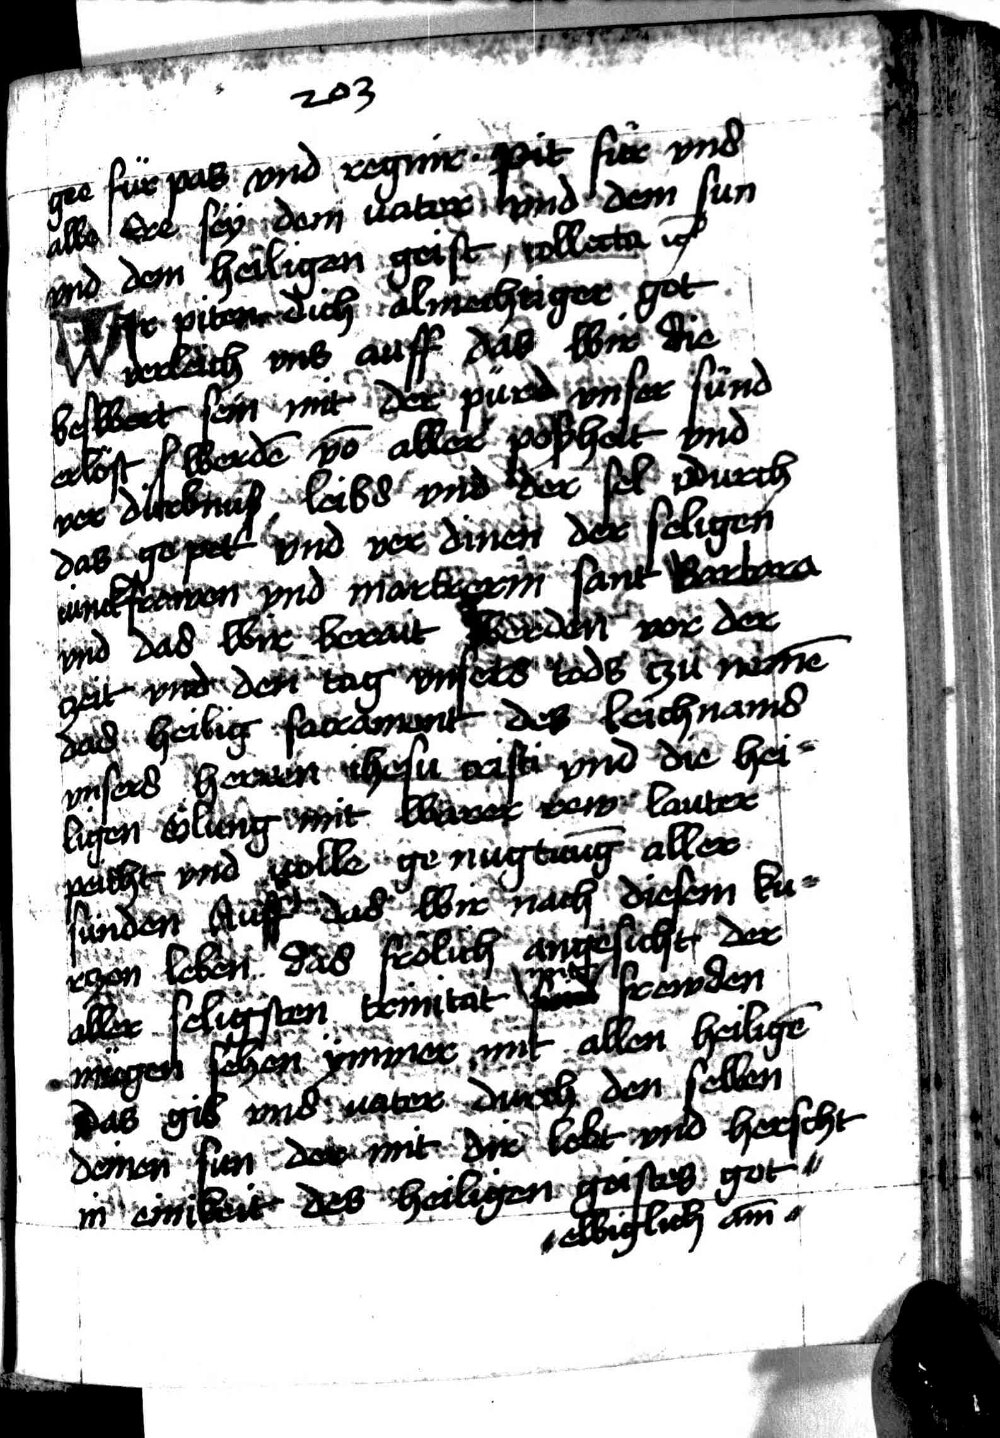 203
gee für pas vnd regnir · Pit für vns
alle Ere seÿ dem vater vnd dem sun
vnd dem heiligen geist , collecta
Wir piten dich almechtiger got
verleich vns auff das wir die
beswert sein mit der pürd vnser sünd
erlöst werdē vō aller posheit vnd
ver dürbnuß leibs vnd der sel durch
das ge pet vnd ver dinen der seligen
iunckfrawen vnd martrerin sant Barbara
vnd das wir berait werden vor der
zeit vnd den tag vnsers tods tzu nemē
das heilig sacrament des leichnams
vnsers herren ihesu cristi vnd die hei=
ligen ölung mit warer rew lauter
peicht vnd volle ge nugtuūg aller
sunden Auff das wir nach diesem ku=
rzen leben das frölich angesicht der
aller seligsten trinitat mit frewden
mügen sehen ÿmmer mit allen heiligē
Das gib vns vater durch den selben
deinen sun der mit dir lebt vnd herscht
in einikeit des heiligen geistes got //
// ewiglich am̄ //